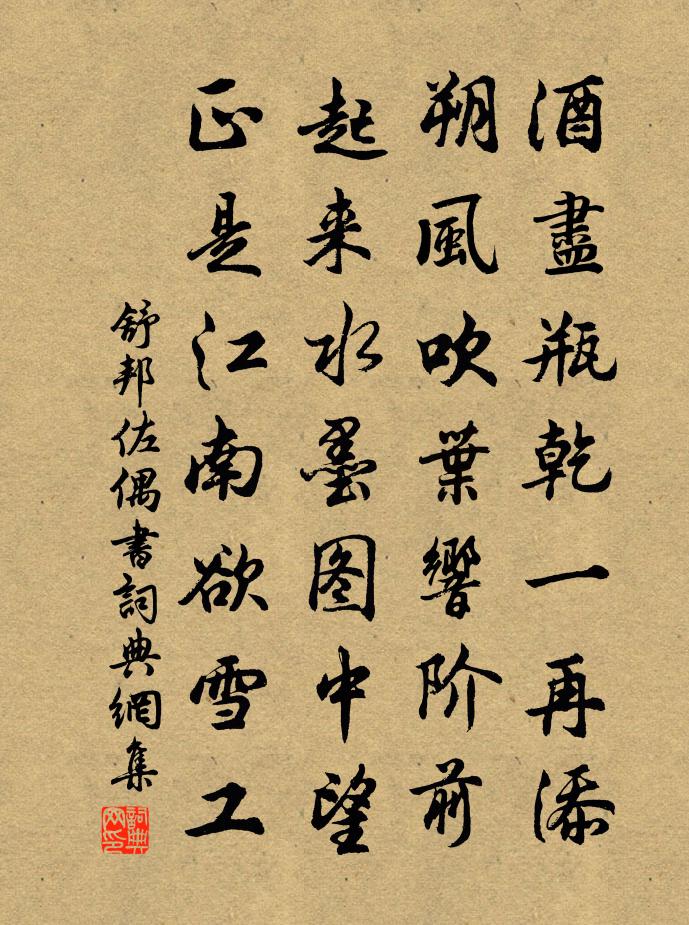 酒盡瓶乾一再添
朔風吹葉響阶前
起来水墨图中望
正是江南欲雪工
舒邦佐偶書詞典網集
詞典网印